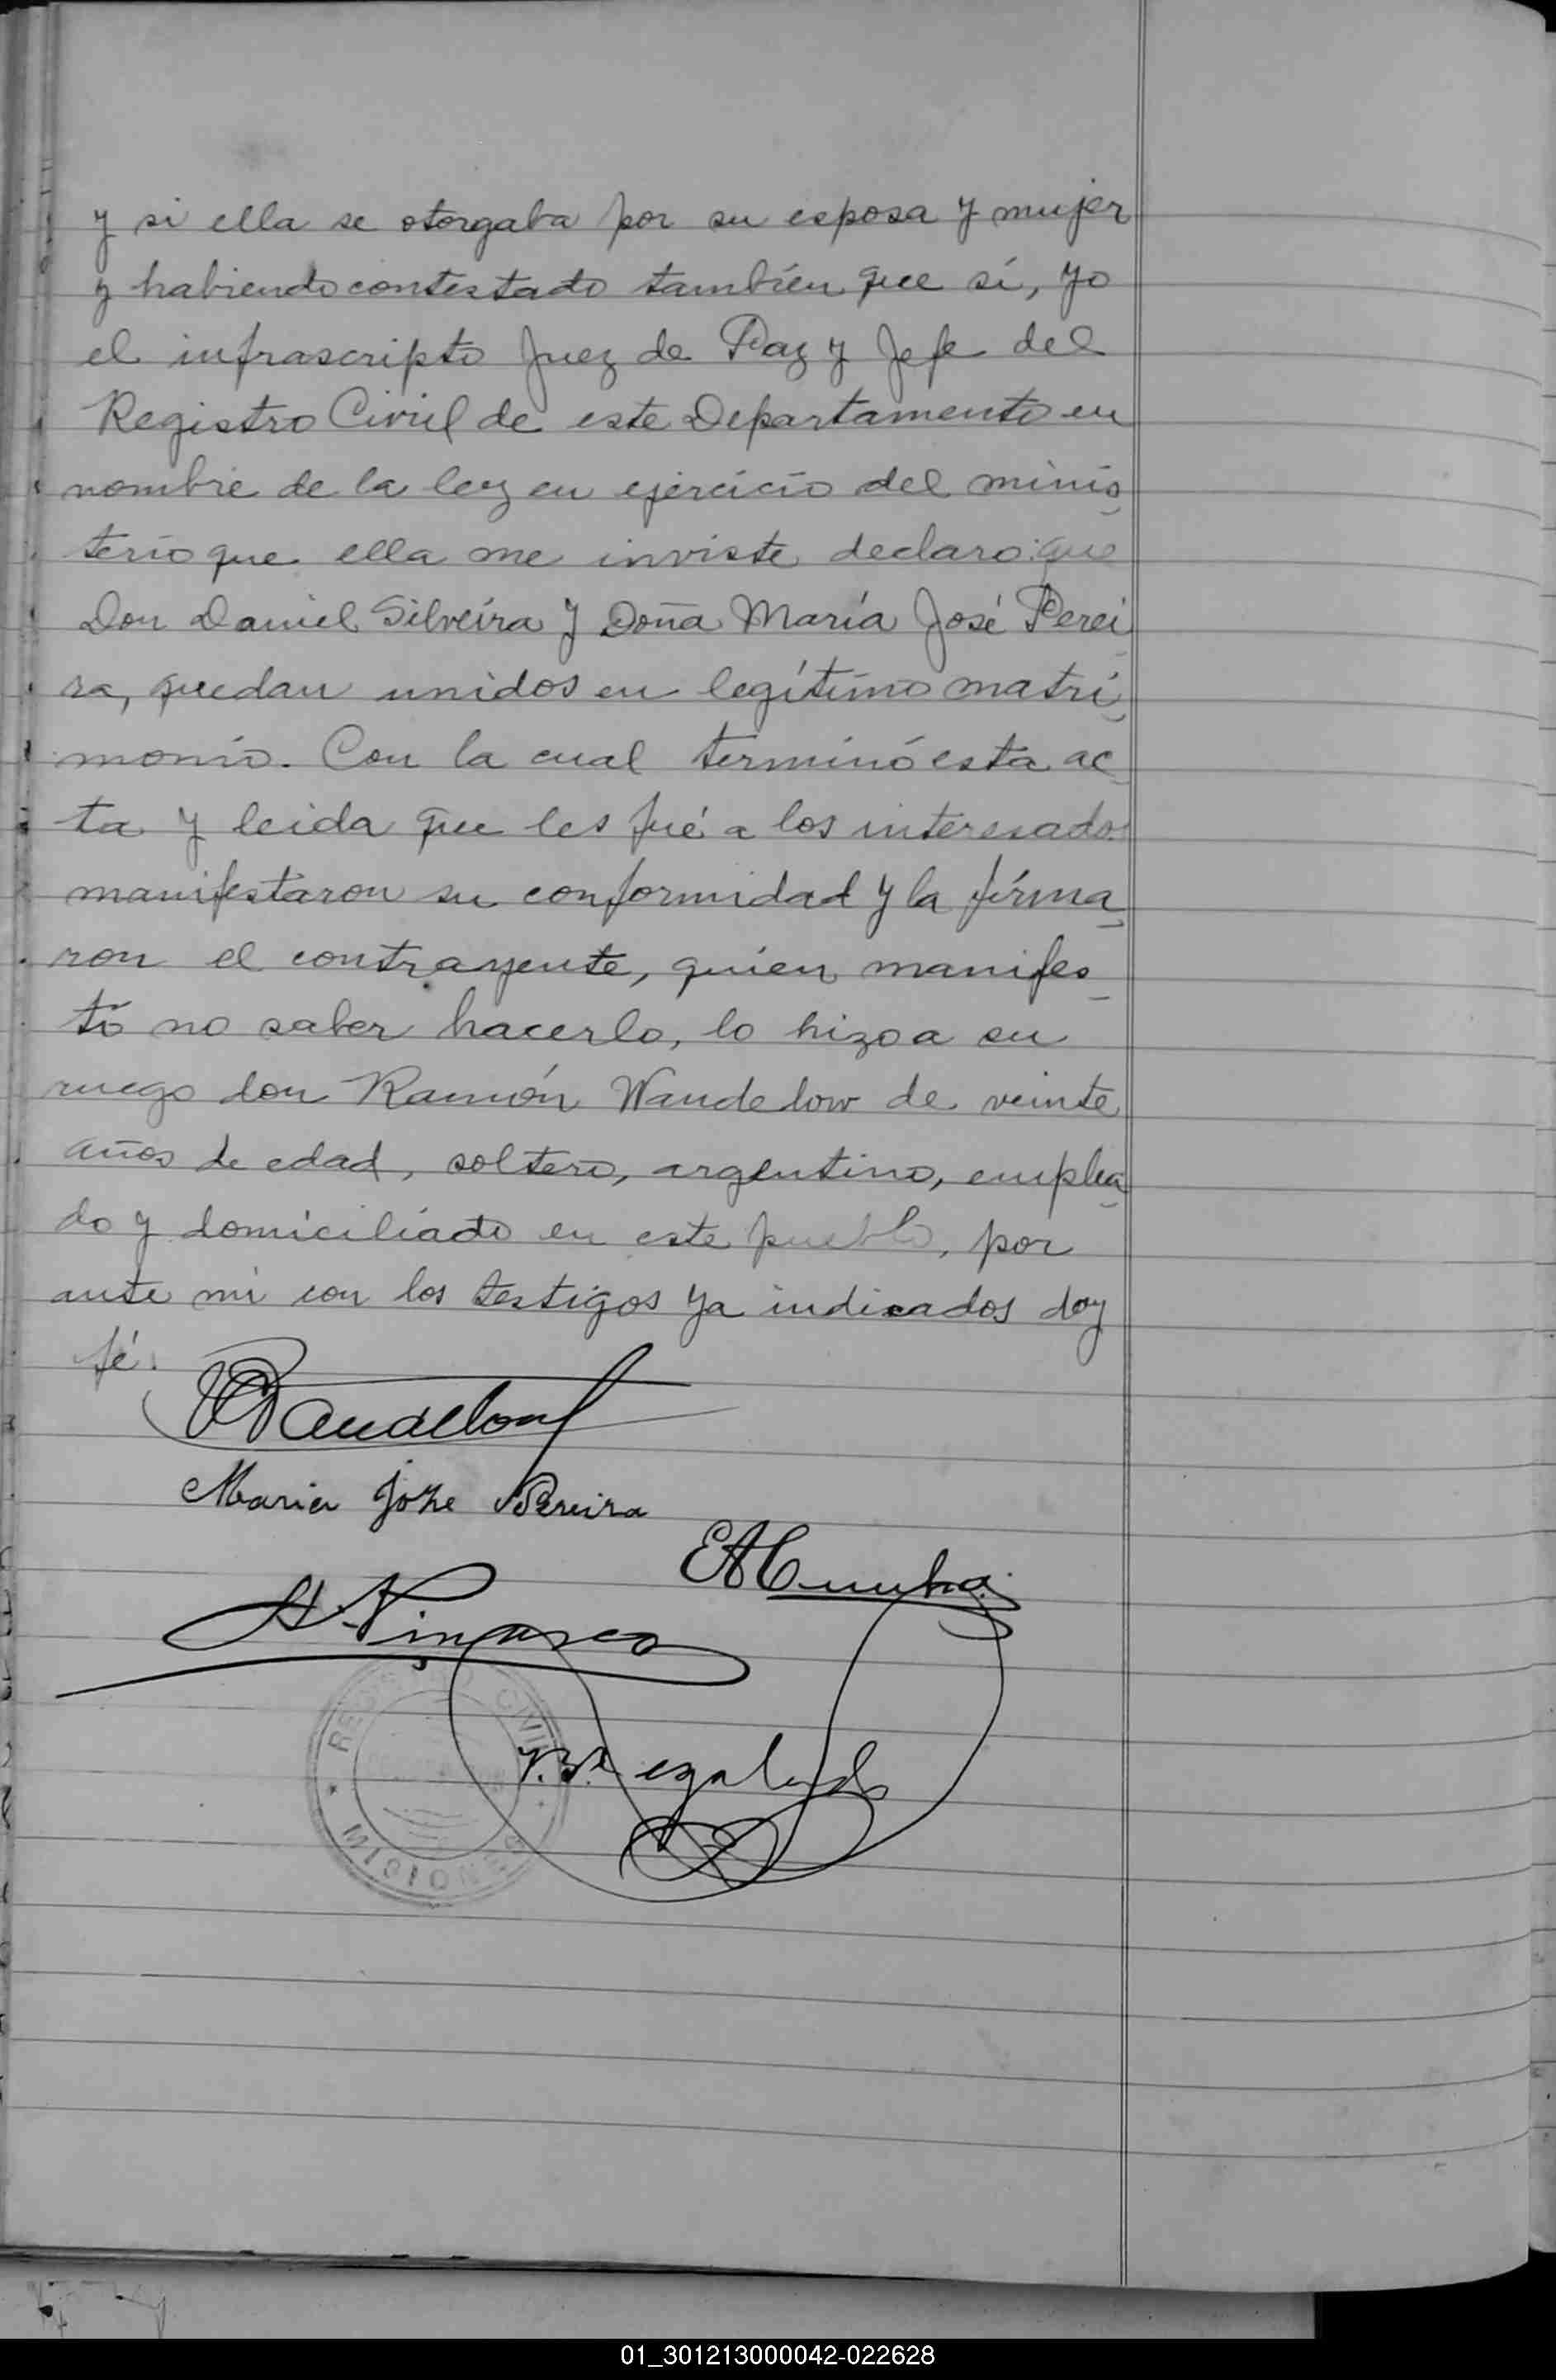 y si ella se otorgaba por su esposa y mujer
y habiendo contestado tambíen que sí, yo
el infrascripto Juez de Paz y Jefe del
Registro Civil de este Departamento en
nombre de la ley en ejercicio del minis
terio que ella me inviste declaro: que
Don Daniel Silveíra y Doña María José Perei
ra, quedan unidos en legítimo matri
monio. Con la cual terminó esta ac
ta y leida que les fué a los interesados
manifestaron su conformidad y la firma
ron el contrayente, quien manifes
tó no saber hacerlo, lo hizo a su
ruego don Ramón Wandelow de veinte
años de edad, soltero, argentino, emplea
do y domiciliado en este pueblo, por
ante mi con los testigos ya indicados doy
fé.
RWandelow
Maria Joze Pereira
EACunha
REGISTRO CIVIL
MISIONES
01_301213000042-022628